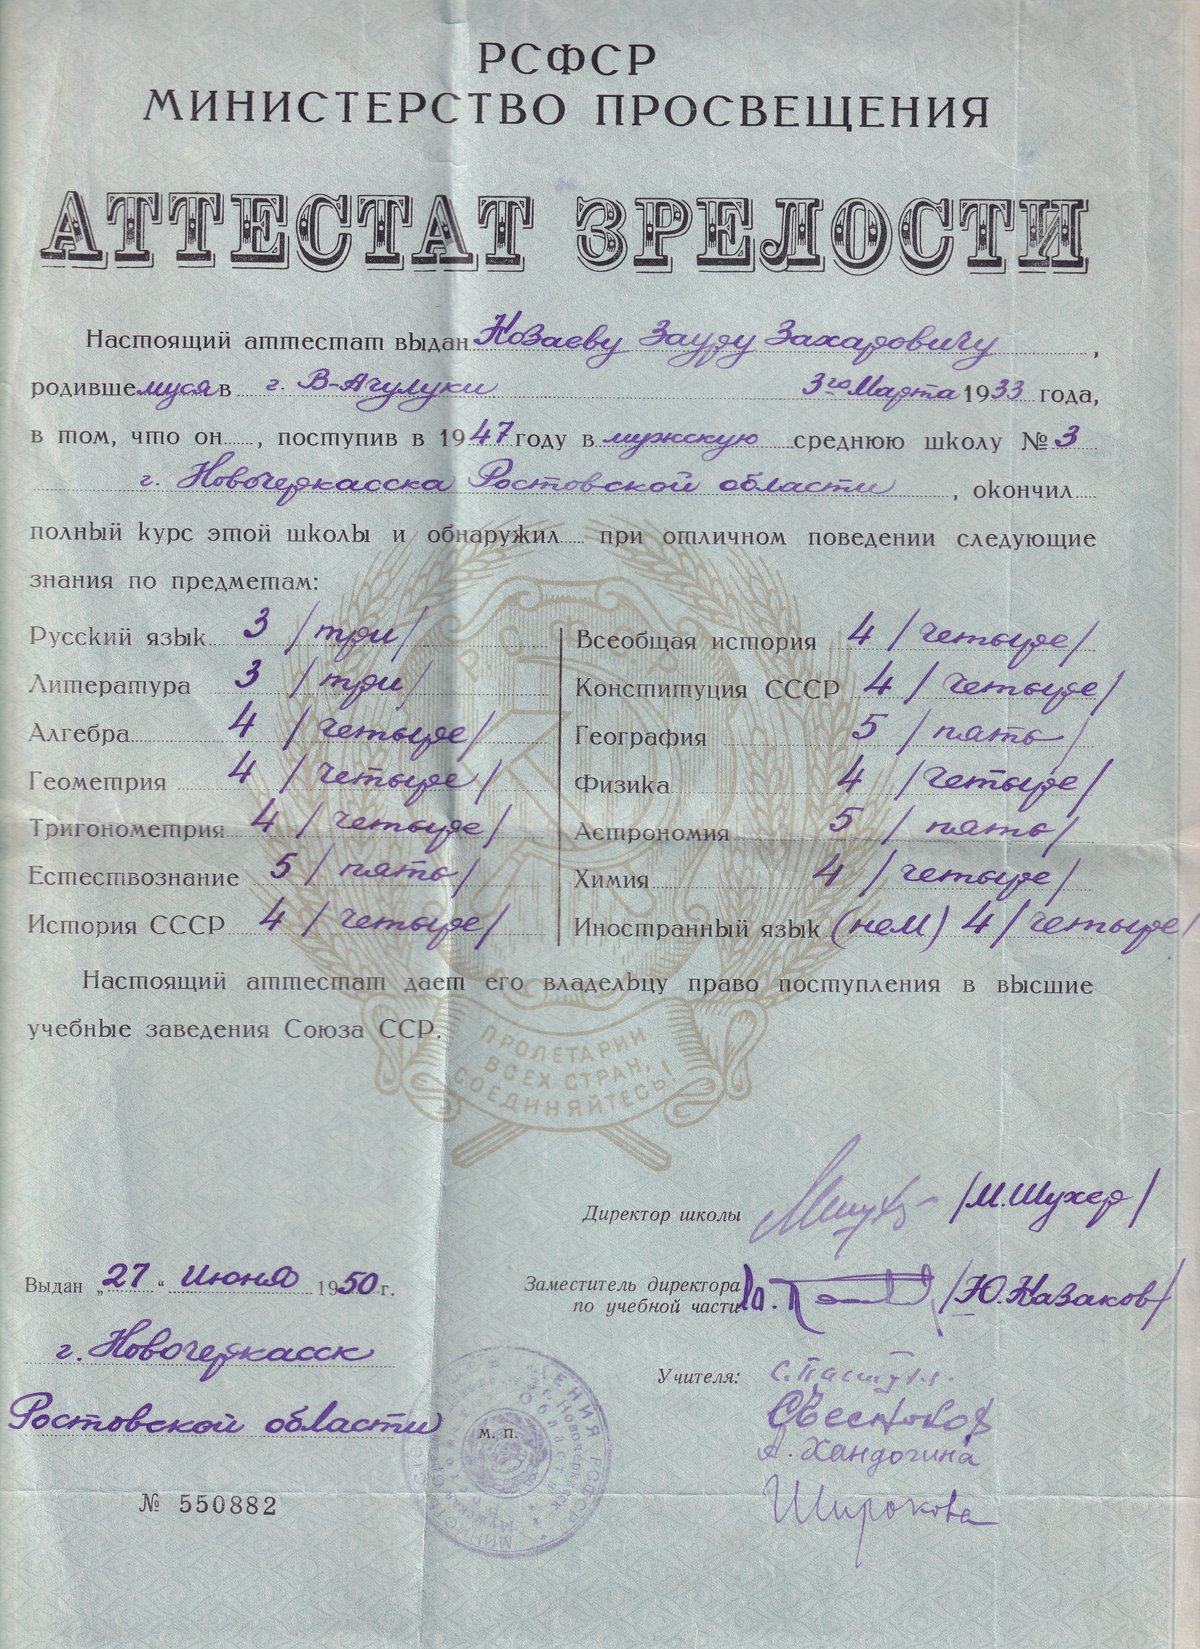 РСФСР
МИНИСТЕРСТВО ПРОСВЕЩЕНИЯ
АТТЕСТАТ ЗРЕЛОСТИ
Настоящий аттестат выдан Козаеву Зауру Захаровичу,
родившемуся в г. В-Ачулуки 3го Марта 1933 года,
в том, что он, поступив в 1947 году в мужскую среднюю школу № 3
г. Новочеркасска Ростовской области, окончил
полный курс этой школы и обнаружил при отличном поведении следующие
знания по предметам:
Русский язык 3 /три/
Литература 3 /три/
Алгебра 4 /четыре/
Геометрия 4 /четыре/
Тригонометрия 4 /четыре/
Естествознание 5 /пять/
История СССР 4 /четыре/
Всеобщая история 4 /четыре/
Конституция СССР 4 /четыре/
География 5 /пять/
Физика 4 /четыре/
Астрономия 5 /пять/
Химия 4 /четыре/
Иностранный язык (нем) 4 /четыре/
Настоящий аттестат дает его владельцу право поступления в высшие
учебные заведения Союза ССР.
РСФСР
ПРОЛЕТАРИИ
ВСЕХ СТРАН,
СОЕДИНЯЙТЕСЬ!
Директор школы /М. Шухер/
Заместитель директора
по учебной части /Ю. Казаков/
Выдан „27“ Июня 1950 г.
г. Новочеркасск
Ростовской области
Учителя:
А. Хандогина
Широкова
м. п.
№ 550882